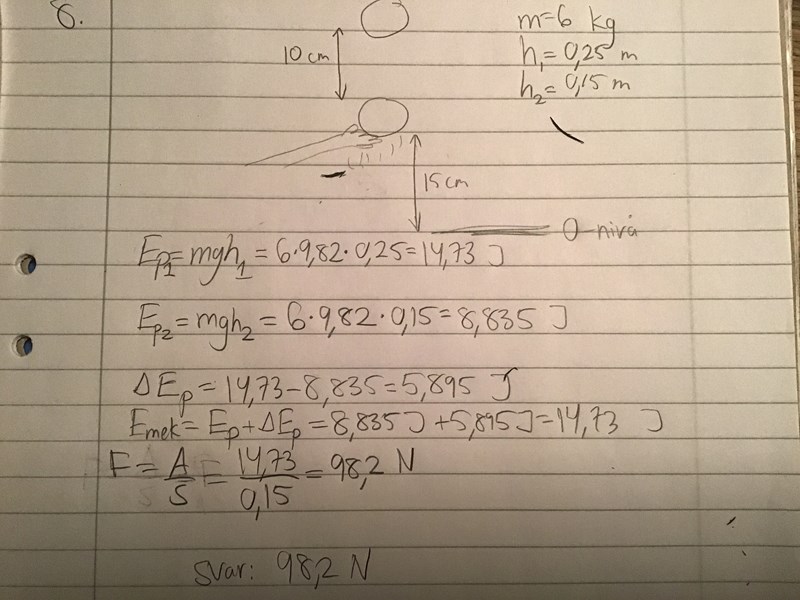 8.
m=6 kg
10 cm
h₁=0,25 m
h₂=0,15 m
15 cm
0-nivå
Ep₁=mgh₁=6·9,82·0,25=14,73 J
Ep₂=mgh₂=6·9,82·0,15=8,835 J
ΔEp=14,73-8,835=5,895 J
Emek=Ep+ΔEp=8,835J+5,895J=14,73 J
F=A/s=14,73/0,15=98,2 N
svar: 98,2 N